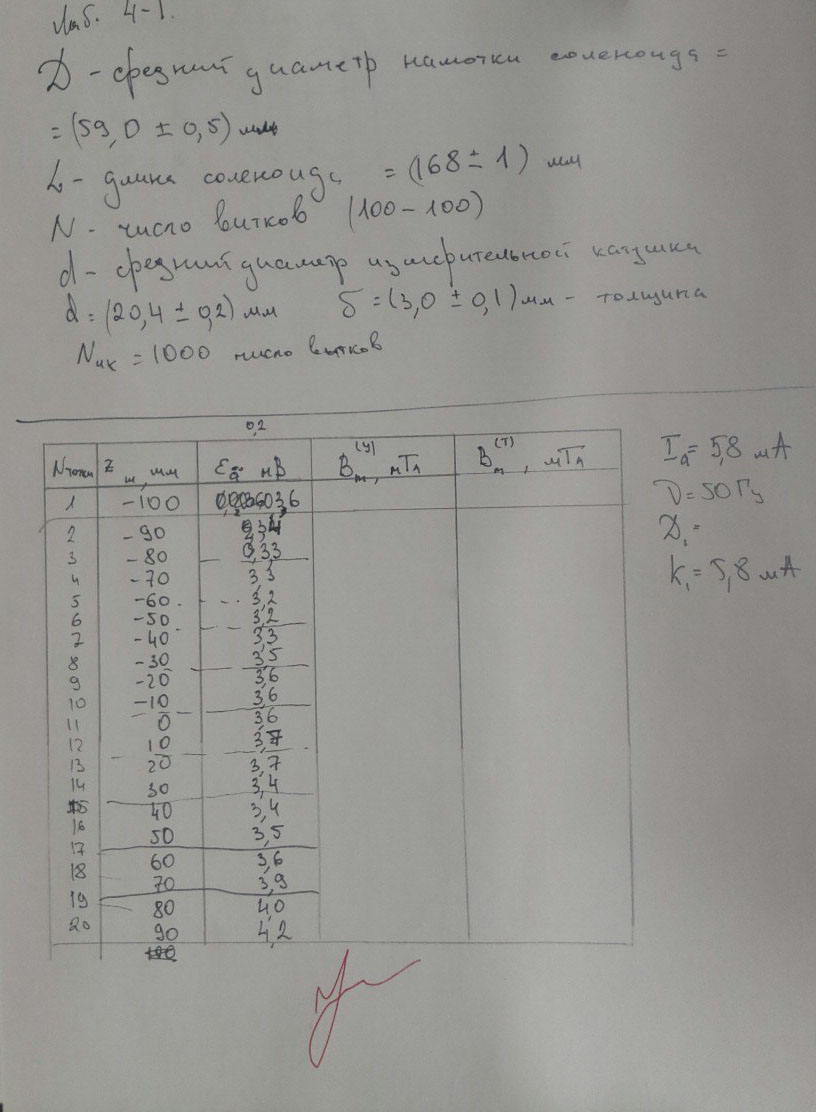 Лаб. 4-1.
D - средний диаметр намотки соленоида =
= (59,0 ± 0,5) мм
L - длина соленоида = (168 ± 1) мм
N - число витков (100 - 100)
d - средний диаметр измерительной катушки
d = (20,4 ± 0,2) мм δ = (3,0 ± 0,1) мм - толщина
Nик = 1000 число витков
0,2
N точки z м, мм , мВ Bm(у), мТл Bm(т), мТл
1 -100 3,6
2 -90
3 -80 3,3
4 -70 3,3
5 -60 3,2
6 -50 3,2
7 -40 3,3
8 -30 3,5
9 -20 3,6
10 -10 3,6
11 0 3,6
12 10 3,7
13 20 3,7
14 30 3,4
15 40 3,4
16 50 3,5
17 60 3,6
18 70 3,9
19 80 4,0
20 90 4,2
100
Iд = 5,8 мА
ν = 50 Гц
D₁ =
k₁ = 5,8 мА